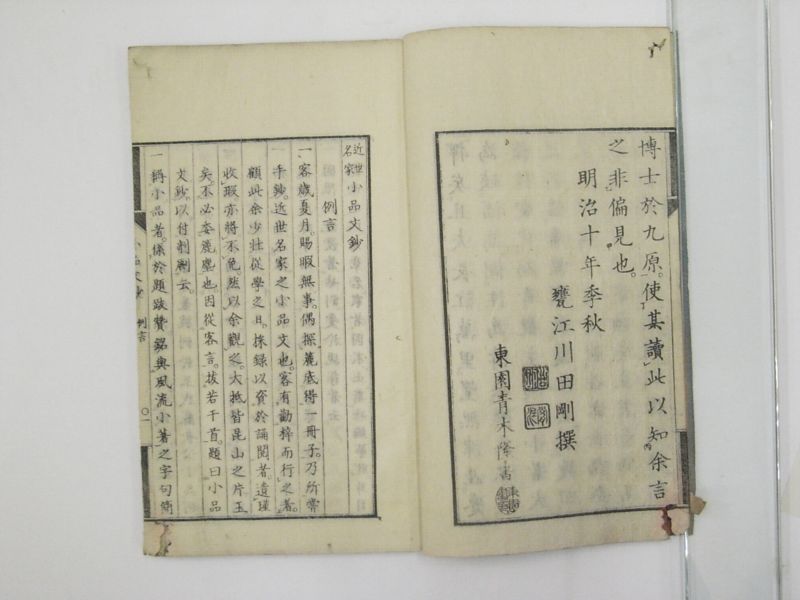 博士於九原。使其讀此以知余言
之非偏見也。
明治十年季秋
甕江川田剛撰
東園青木隆書
近世名家小品文鈔
例言
一客歲夏月。賜暇無事。偶探簏底得一冊子。乃所嘗
手鈔。近世名家之小品文也。客有勸梓而行之者。
顧此余少壯從學之日。採錄以資於誦閱者。遺瑾
收瑕亦將不免。然以余觀之。大抵皆昆山之片玉
矣。不必委麓塵也。因從客言。拔若干首。題曰小品
文鈔。以付剞劂云。
一稱小品者。係於題跋贊銘與風流小著之字句簡
小品文鈔 例言 〇一